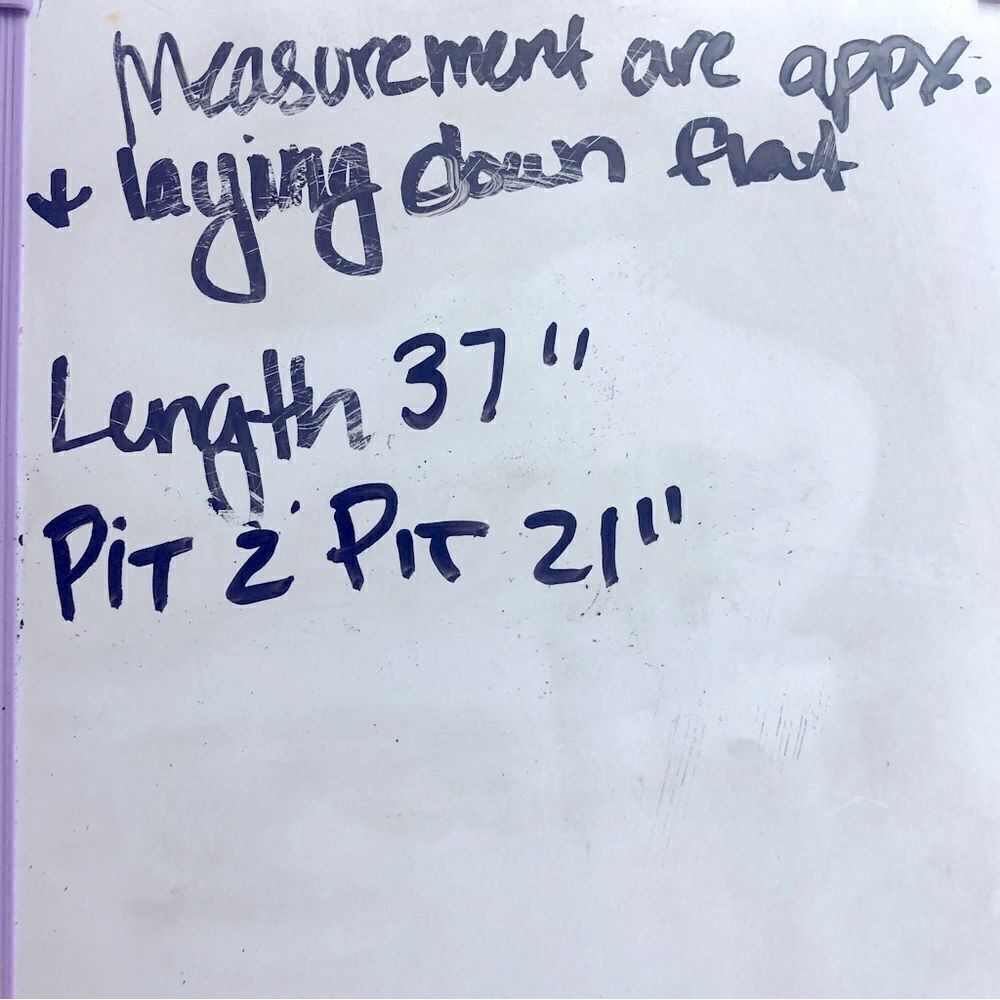 Measurement are appx.
↓ laying down flat
Length 37"
PiT 2 PIT 21"